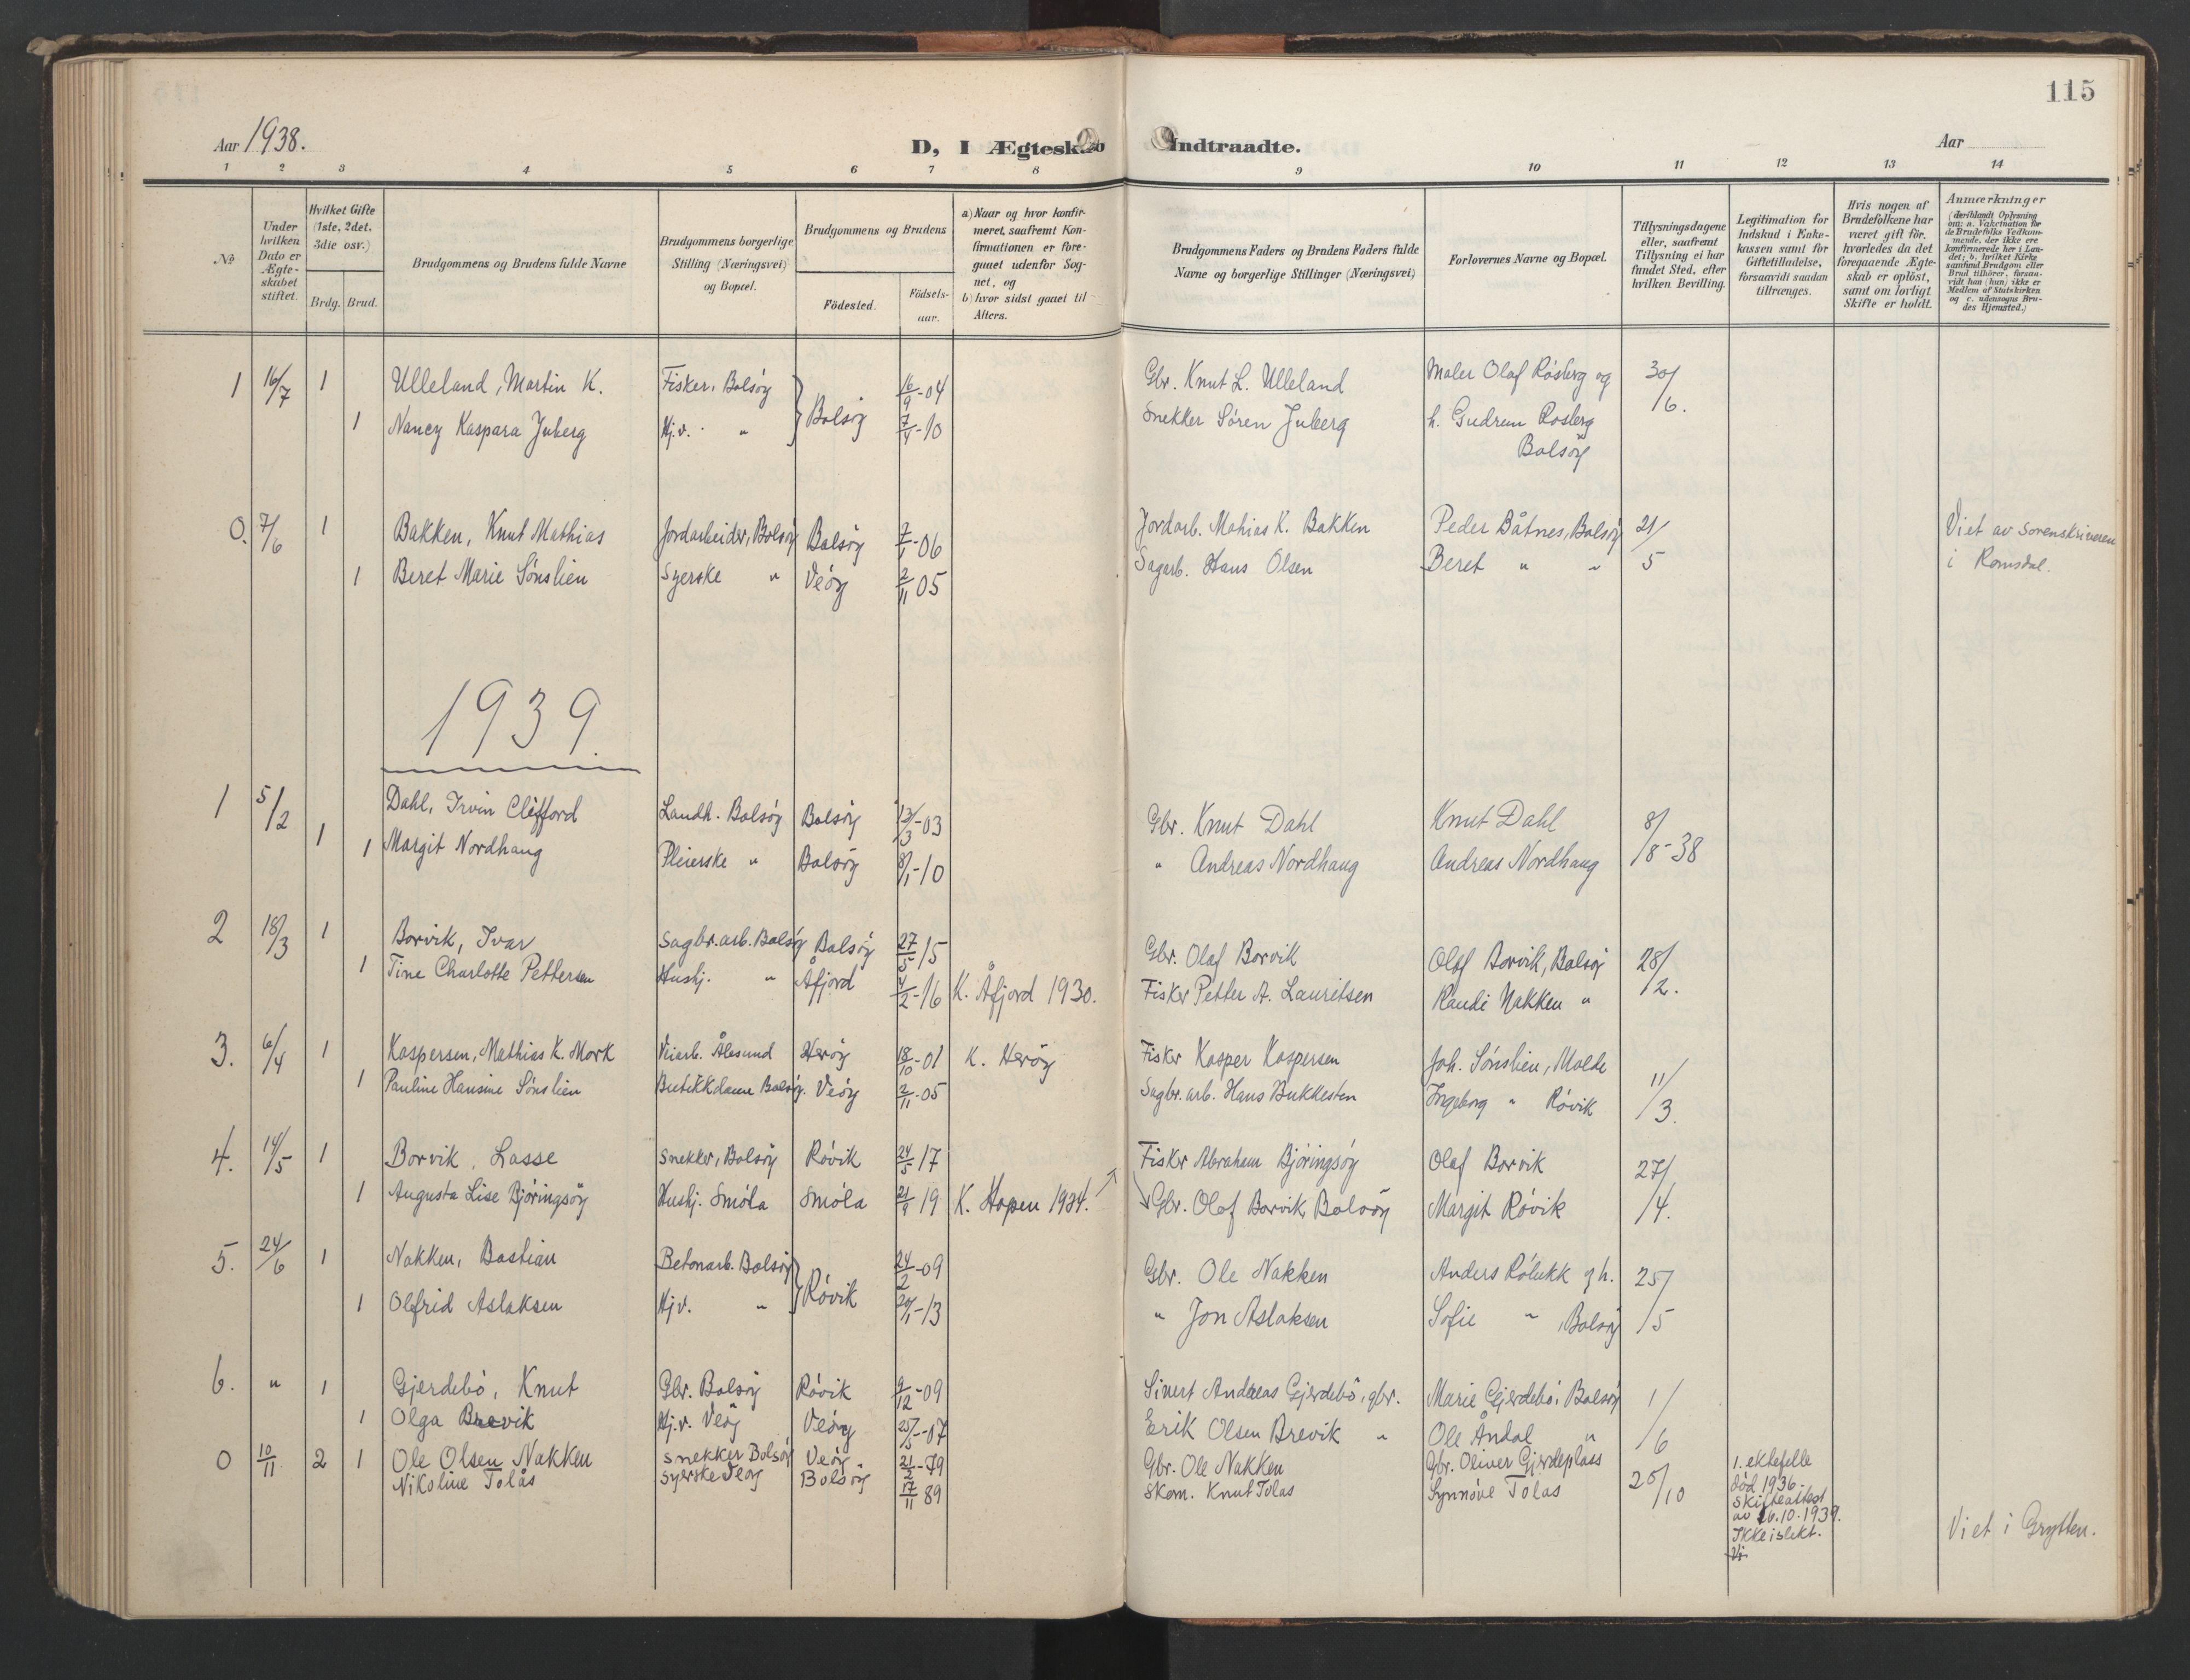 115
Aar 1938.
D, I Ægteskab Indtraadte.
Aar
1 2 3 4 5 6 7 8 9 10 11 12 13 14
№
Under hvilken Dato er Ægteskabet stiftet.
Hvilket Gifte (1ste, 2det. 3die osv.)
Brdg. Brud.
Brudgommens og Brudens fulde Navne
Brudgommens borgerlige Stilling (Næringsvei) og Bopæl.
Brudgommens og Brudens
Födested.
Födselsaar.
a) Naar og hvor konfirmeret, saafremt Konfirmationen er foregaaet udenfor Sognet, og
b) hvor sidst gaaet til Alters.
Brudgommens Faders og Brudens Faders fulde Navne og borgerlige Stillinger (Næringsvei)
Forlovernes Navne og Bopæl.
Tillysningsdagene eller, saafremt Tillysning ei har fundet Sted, efter hvilken Bevilling.
Legitimation for Indskud i Enkekassen samt for Giftetilladelse, forsaavidt saadan tiltrænges.
Hvis nogen af Brudefolkene har været gift för, hvorledes da det foregaaende Ægteskab er oplöst, samt om lovligt Skifte er holdt.
Anmærkninger
(deriblandt Oplysning om: a. Vakcination for de Brudefolks Vedkommende, der ikke ere konfirmerede her i Landet; b. hvilket Kirkesamfund Brudgom eller Brud tilhörer, forsaavidt han (hun) ikke er Medlem af Statskirken og c. udensogns Brudes Hjemsted.)
1 16/7 1 Ulleland, Martin K. Fisker, Bolsøy } Bolsøy 16/9-04 Gbr. Knut L. Ulleland Maler Olaf Røsberg og 30/6.
1 Nancy Kaspara Juberg Hj.v. " 7/4-10 Snekker Søren Juberg h. Gudrun Røsberg
Bolsøy
0. 7/6 1 Bakken, Knut Mathias Jordarbeider, Bolsøy Bolsøy 7/1-06 Jordarb. Mathias K. Bakken Peder Båtnes, Bolsøy 21/5 Viet av sorenskriveren
1 Beret Marie Sønslien Syerske " Veøy 2/11 05 Sagarb. Hans Olsen Beret " " i Romsdal.
1939.
1 5/2 1 Dahl, Irvin Clifford Landh. Bolsøy Bolsøy 12/3-03 Gbr. Knut Dahl Knut Dahl 8/8-38
1 Margit Nordhaug Pleierske " Bolsøy 8/1-10 " Andreas Nordhaug Andreas Nordhaug
2 18/3 1 Borvik, Ivar Sagbr.arb. Bolsøy Bolsøy 27/5 15 Gbr. Olaf Borvik Olaf Borvik, Bolsøy 28/2.
1 Tine Charlotte Pettersen Hushj. " Åfjord 4/2-16 K. Åfjord 1930. Fisker Petter A. Lauritsen Randi Nakken "
3. 6/4 1 Kaspersen, Mathias K. Mork Veiarb. Ålesund Herøy 18/10-01 K. Herøy Fisker Kasper Kaspersen Joh. Sønslien, Molde 11/3.
1 Pauline Hansine Sønslien Butikkdame Bolsøy. Veøy 2/11-05 Sagbr. arb. Hans Bukkesten Ingeborg " Røvik
4. 14/5 1 Borvik, Lasse Snekker, Bolsøy Røvik 24/5-17 Fisker Abraham Bjøringsøy Olaf Borvik 27/4.
1 Augusta Lise Bjøringsøy Hushj. Smøla Smøla 21/9 19 K. Hopen 1934. Gbr. Olaf Borvik, Bolsøy Margit Røvik
5. 24/6 1 Nakken, Bastian Betonarb. Bolsøy } Røvik 24/2-09 Gbr. Ole Nakken Anders Rølukk g h. 25/5
1 Olfrid Aslaksen Hjv. " 20/1-13 " Jon Aslaksen Sofie " , Bolsøy
6. " 1 Gjerdebø, Knut Gbr. Bolsøy Røvik 9/12-09 Sivert Andreas Gjerdebø, gbr. Marie Gjerdebø, Bolsøy 1/6
1 Olga Brevik Hj.v. Veøy Veøy 25/5-07 Erik Olsen Brevik " Ole Åndal "
0 10/11 2 1 Ole Olsen Nakken Snekker Bolsøy Veøy 21/2-79 Gbr. Ole Nakken Gbr. Oliver Gjerdeplass 20/10 1. ektefelle
Nikoline Tolås Syerske Veøy Bolsøy 17/11 89 Skom. Knut Tolås Synnøve Tolås død 1936.
Skifteattest
av 26.10.1939.
Ikke i slekt.
Viet i Grytten.